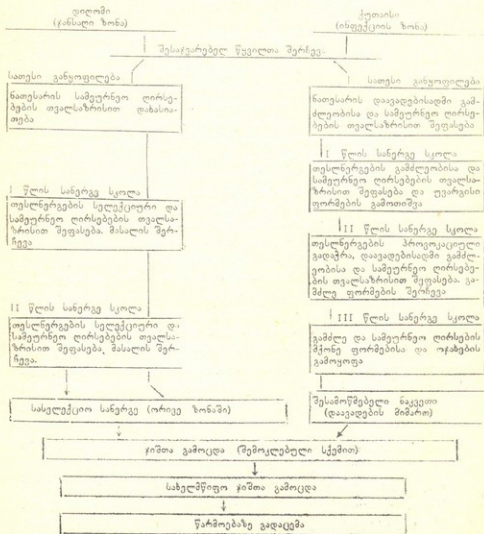 დიღომი
(ჯანსაღი ზონა)
ქუთაისი
(ინფექციის ზონა)
შესაჯვარებელ წყვილთა შერჩევა
სათესი განყოფილება
ნათესარის სამეურნეო ღირსე-
ბების თვალსაზრისით დახასია-
თება
I წლის სანერგე სკოლა
თესლნერგების სელექციური და
სამეურნეო ღირსებების თვალსა-
ზრისით შეფასება. მასალის შერ-
ჩევა
II წლის სანერგე სკოლა
თესლნერგების სელექციური და
სამეურნეო ღირსებების თვალსა-
ზრისით შეფასება, მასალის შერ-
ჩევა.
სათესი განყოფილება
ნათესარის დაავადებისადმი გამ-
ძლეობისა და სამეურნეო ღირსე-
ბების თვალსაზრისით შეფასება
I წლის სანერგე სკოლა
თესლნერგების გამძლეობისა და
სამეურნეო ღირსებების თვალსა-
ზრისით შეფასება და უვარგისი
ფორმების გამოთიშვა
II წლის სანერგე სკოლა
თესლნერგების პროვოკაციული
გადაჭრა, დაავადებისადმი გამძლ-
ეობისა და სამეურნეო ღირსებე-
ბის თვალსაზრისით შეფასება. გა-
მძლე ფორმების შერჩევა
III წლის სანერგე სკოლა
გამძლე და სამეურნეო ღირსების
მქონე ფორმებისა და ოჯახების
გამოყოფა
სასელექციო სანერგე (ორივე ზონაში)
შესამოწმებელი ნაკვეთი
(დაავადების მიმართ)
ჯიშთა გამოცდა (შემოკლებული სქემით)
სახელმწიფო ჯიშთა გამოცდა
წარმოებაზე გადაცემა